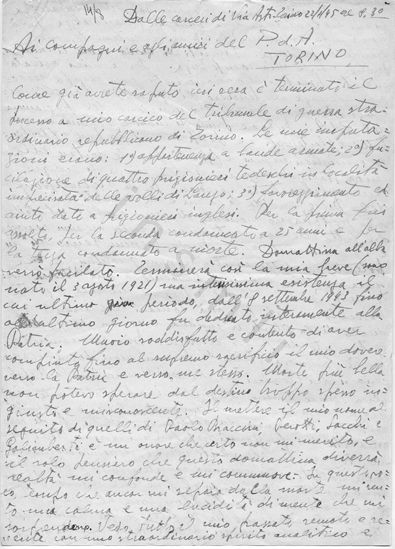 14/8
Dalle carceri di Via Asti
Ai compagni e agli amici del P.d.A.
TORINO
Come già avrete saputo, ieri sera è terminato il
processo a mio carico del tribunale di guerra stra-
ordinario repubblicano di Torino. Le mie imputa-
zioni erano: 1) appartenenza a bande armate; 2) fu-
cilazione di quattro prigionieri tedeschi in località
imprecisata delle valli di Lanzo; 3)
aiuto dato a prigionieri inglesi. Per la prima fui
assolto, per la seconda condannato a 25 anni e per
la terza condannato a morte. Domattina all'alba
verrò fucilato. Terminerà così la mia breve (mio
nato il 3 agosto 1921) ma intensissima esistenza il
cui ultimo periodo, dall'8 settembre 1943 fino
all'ultimo giorno fu dedicato interamente alla
Patria. Muoio soddisfatto e contento di aver
compiuto fino al supremo sacrificio il mio dovere
verso la Patria e verso me stesso. Morte più bella
non potevo sperare dal destino troppo spesso in-
giusto e misconoscente. Il mettere il mio nome al
seguito di quelli di Paolo Braccini,
Galimberti è un onore che certo non mi merito, e
il solo pensiero che questo domattina diverrà
realtà mi confonde e mi commuove. In questo po-
co tempo che ancor mi separa dalla morte mi sen-
to una calma e una lucidità di mente che mi
sorprendono. Vedo tutto il mio passato remoto e re-
cente con uno straordinario spirito analitico e